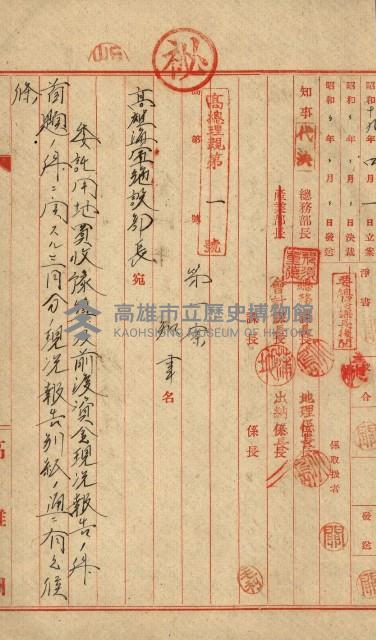 秘
昭和十九年 月 日立案
昭和 年 月 日決裁
昭和 年 月 日發送
淨書
合
發送
知事
代決
總務部長
產業部長
總務課長
會計課長
課長
地理係長
出納係長
係長
係
取扱者
高總理親第一號
第一案
高雄海軍施設部長 宛
知事名
委託用地買收繰替前渡資金現況報告ノ件
首題ノ件ニ関スル三月分現況報告別紙ノ通ニ有之候
條
高雄市立歷史博物館
KAOHSIUNG MUSEUM OF HISTORY
高雄州